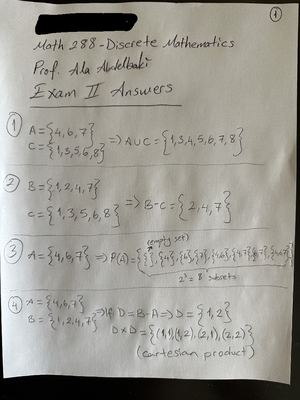 ①
Math 288-Discrete Mathematics
Prof. Ala Abdelbaki
Exam II Answers
① A={4,6,7}
C={1,3,5,6,8} => AUC={1,3,4,5,6,7,8}
② B={1,2,4,7}
C={1,3,5,6,8} => B-C={2,4,7}
(empty set)
③ A={4,6,7} => P(A)={{ },{4},{6},{7},{4,6},{4,7},{6,7},{4,6,7}}
2³=8 subsets
④ A={4,6,7}
B={1,2,4,7} => If D=B-A => D={1,2}
D×D={(1,1),(1,2),(2,1),(2,2)}
(cartesian product)